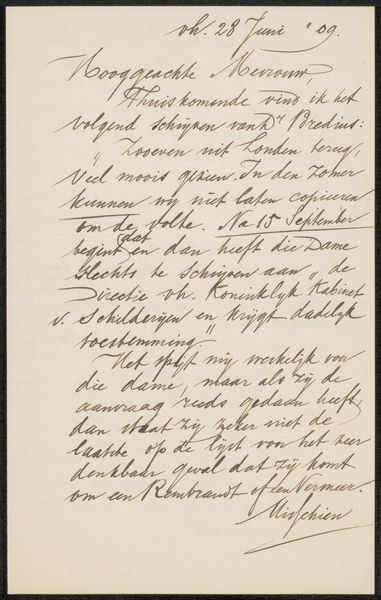 vh. 28 Juni '09.
Hooggeachte Mevrouw,
Thuiskomende vind ik het
volgend schrijven van Dr Bredius:
"Zooeven uit Londen terug,
veel moois gezien. In den zomer
kunnen wij niet laten copieeren
om de volte. Na 15 September
begint dat en dan heeft die Dame
slechts te schrijven aan "de
Directie vh. Koninklijk Kabinet
v. Schilderijen en krijgt dadelijk
toestemming."
Het spijt mij werkelijk voor
die dame, maar als zij de
aanvraag reeds gedaan heeft,
dan staat zij zeker niet de
laatste op de lijst voor het zeer
denkbaar geval dat zij komt
om een Rembrandt of een Vermeer.
Misschien